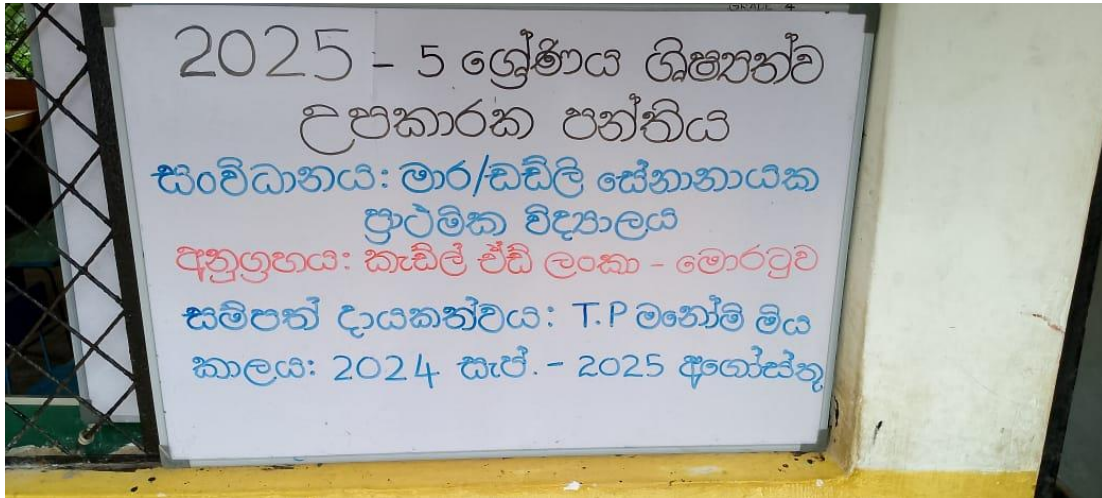 GRADE 4
2025 - 5 ශ්‍රේණිය ශිෂ්‍යත්ව
උපකාරක පන්තිය
සංවිධානය: මාර/ඩඩ්ලි සේනානායක
ප්‍රාථමික විද්‍යාලය
අනුග්‍රහය: කැඩ්ල් ඒඩ් ලංකා - මොරටුව
සම්පත් දායකත්වය: T.P මනෝමි මිය
කාලය: 2024 සැප්. - 2025 අගෝස්තු